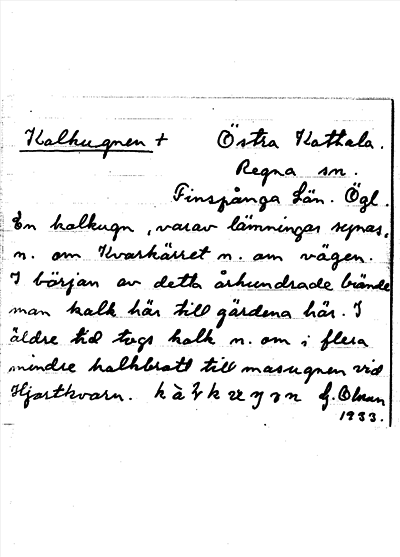 Kalkugnen +
Östra Kathala.
Regna sn.
Finspånga Län. Ögl.
En kalkugn, varav lämningar synas,
n. om Kvarkärret n. om vägen.
I början av detta århundrade brände
man kalk här till gårdena här. I
äldre tid togs kalk n. om i flera
mindre kalkbrott till masugnen vid
Hjortkvarn. G. Olsson
1933.